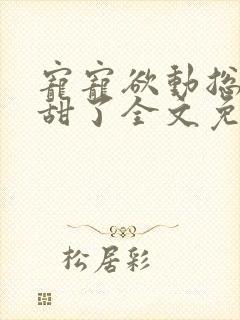 寵寵欲動總
甜了全文免
松居彩